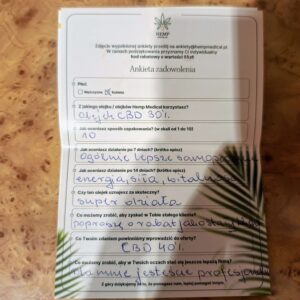 HEMP
MEDICAL
Zdjęcie wypełnionej ankiety prześlij na ankiety@hempmedical.pl
W ramach podziękowania przyznamy Ci indywidualny
kod rabatowy o wartości
Ankieta zadowolenia
Płeć
Mężczyzna Kobieta
Z jakiego olejku / olejków Hemp Medical korzystasz?
olejek CBD 30%
Jak oceniasz sposób zapakowania? (w skali od 1 do 10)
10
Jak oceniasz działanie po 7 dniach? (krótko opisz)
ogólnie lepsze
Jak oceniasz działanie po 14 dniach? (krótko opisz)
energia, siła,
Czy ten olejek uznajesz za skuteczny?
super działa
Co możemy zrobić, aby zyskać w Tobie stałego klienta?
poproszę o rabat
Co Twoim zdaniem powinniśmy wprowadzić do oferty?
CBD 40%
Co możemy zrobić, aby w Twoich oczach stać się jeszcze lepszą firmą?
dla mnie jesteście
Z góry dziękujemy za to, że pomagasz nam, lepiej pomagać innym.